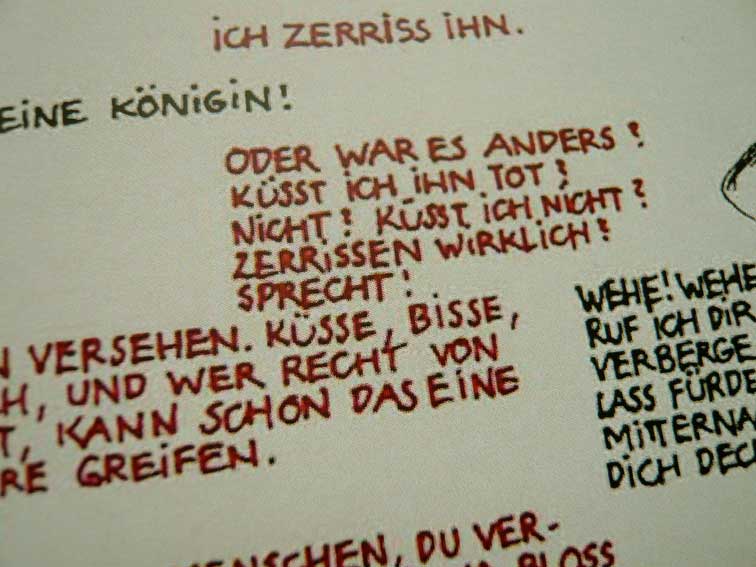 ICH ZERRISS IHN.
EINE KÖNIGIN!
ODER WAR ES ANDERS?
KÜSST ICH IHN TOT?
NICHT? KÜSST ICH NICHT?
ZERRISSEN WIRKLICH?
SPRECHT!
N VERSEHEN. KÜSSE, BISSE,
H, UND WER RECHT VON
T, KANN SCHON DAS EINE
RE GREIFEN.
WEHE! WEHE
RUF ICH DIR
VERBERGE
LASS FÜRDE
MITTERNA
DICH DEC
MENSCHEN, DU VER-
BLOSS